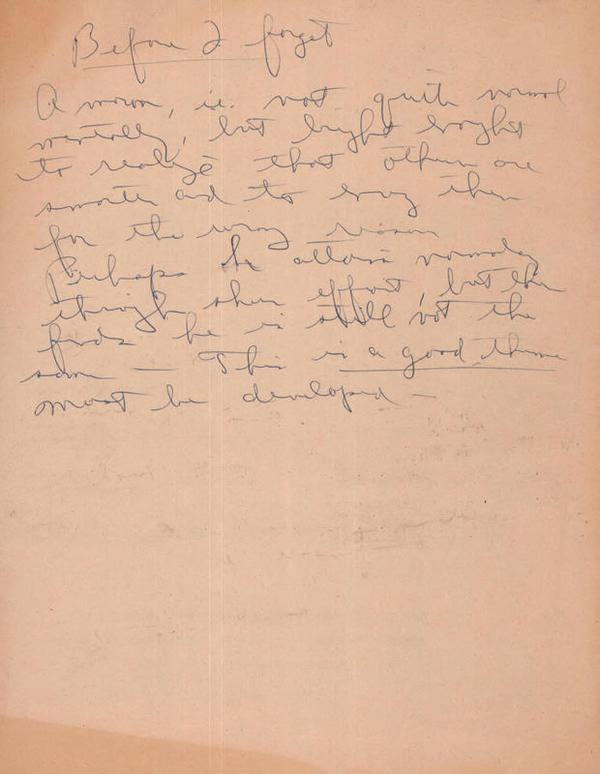 Before I forget
A moron, ie. not quite normal
mentally, but bright enought
to realize that others are
smarter and to envy them
for the wrong reason
Perhaps he attains normalcy
through sheer effort, but then
finds he is still not the
same — This is a good theme
must be developed —